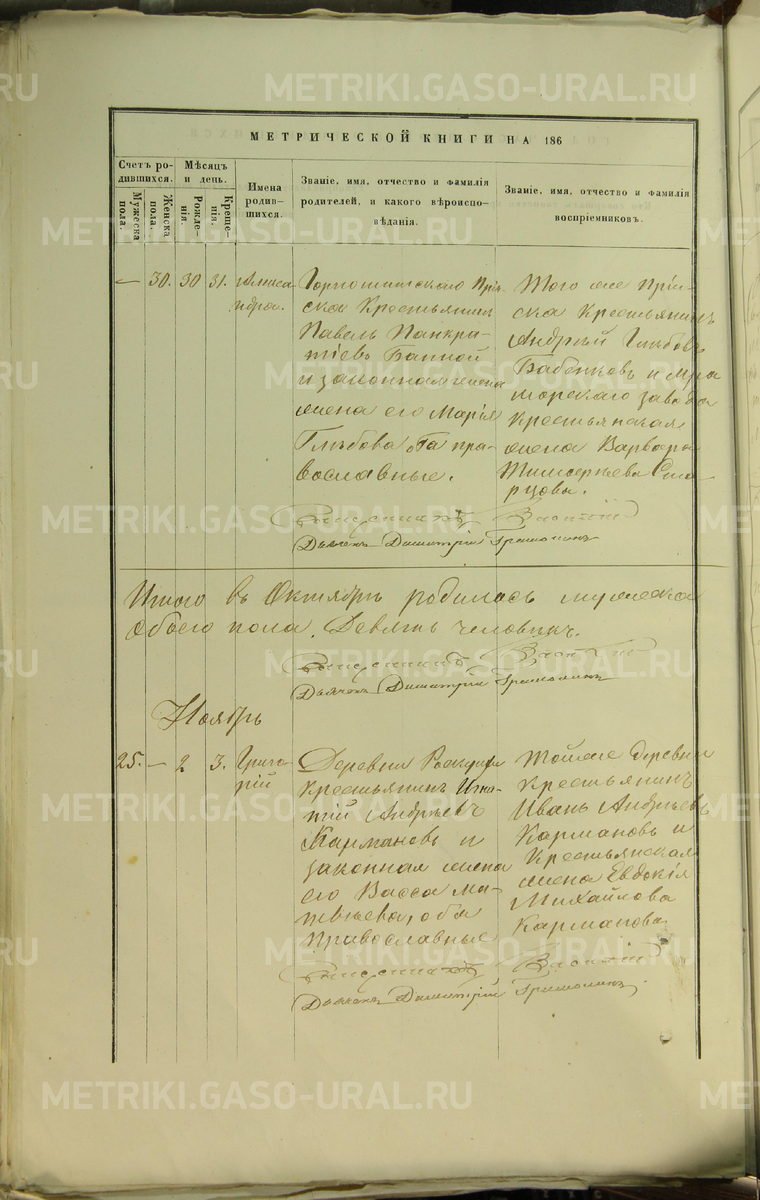 METRIKI.GASO-URAL.RU
МЕТРИЧЕСКОЙ КНИГИ НА 186
Счетъ ро-
дившихся.
Мужеска
пола.
Женска
пола.
Мѣсяцъ
и день.
Рожде-
нія.
Креще-
нія.
Имена
родив-
шихся.
Званіе, имя, отчество и фамилія
родителей, и какого вѣроиспо-
вѣданія.
Званіе, имя, отчество и фамилія
воспріемниковъ.
— 30. 30 31.
Алекса
ндра.
Горнощитскаго Прі
ска Крестьянинъ
Павелъ Панкра-
тіевъ
и законная жена
жена его Марія
Глѣбова, оба пра-
вославные.
Того же Прі-
ска Крестьянинъ
Андрей Глѣбовъ
Бабенковъ и Мра
морскаго завода
Крестьянская
жена Варвара
Ста
рцова.
Священникъ
Дьячекъ Димитрій
Итого въ Октябрѣ родилось мужеска
обоего пола. Девять человѣкъ.
Священникъ
Дьячекъ Димитрій
Ноябрь
25. — 2 3.
Григо
рій
Деревни
крестьянинъ Игна-
тій Андреевъ
Кармановъ и
законная жена
его Васса Ма-
твѣева, оба
Православные
Тойже деревни
Крестьянинъ
Иванъ Андреевъ
Кармановъ и
Крестьянская
жена Евдокія
Михайлова
Карманова.
Священникъ
Дьячекъ Димитрій